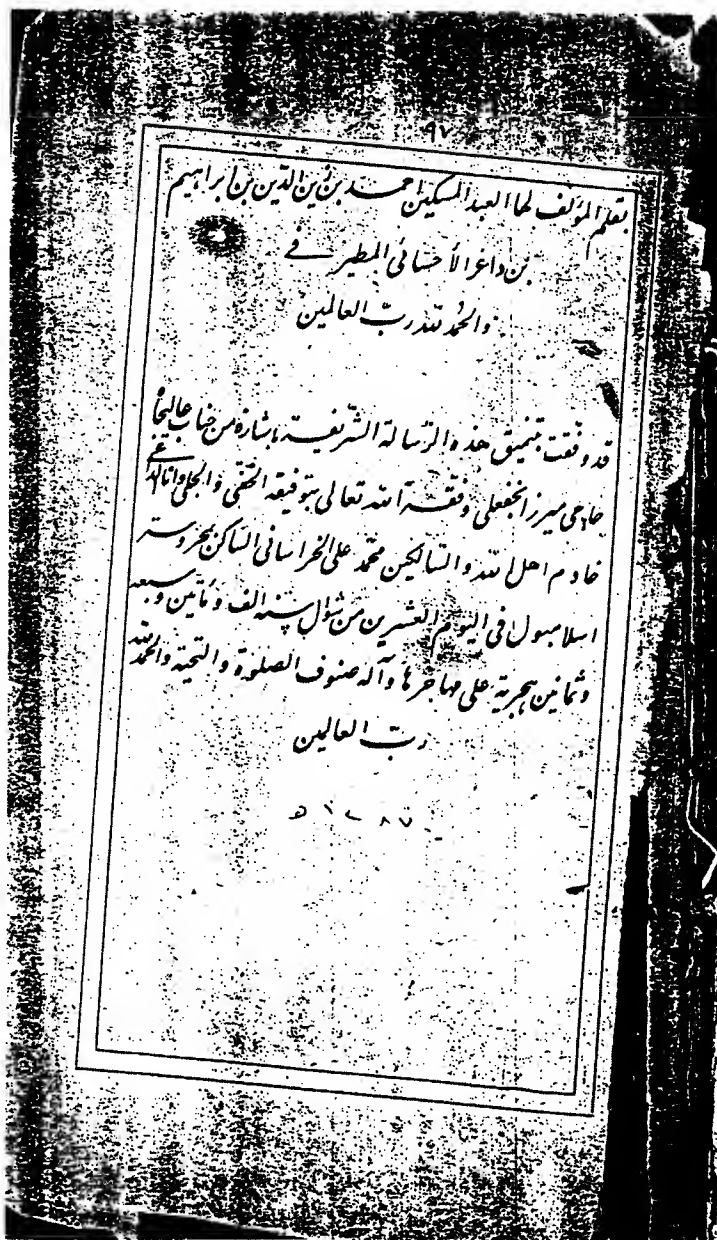 ٩٧
بقلم المؤلف لها العبد المسكين احمد بن زين الدّين بن ابراهيم
بن داغر الأحسائي المطيرفي
والحمد لله ربّ العالمين
قد وفّقت بتنميق هذه الرّسالة الشّريفة باشارة من جناب عاليجاه
حاجي ميرزا نجفعلي وفّقه الله تعالى بتوفيقه الخفي والجلي وانا
خادم اهل الله والسّالكين محمّد على الخراسانى الساكن بمحروسه
اسلامبول فى اليوم العشرين من شوّال سنه الف ومأتين وسبعه
وثمانين هجرية على مهاجرها وآله صنوف الصلوة والتحية والحمد لله
ربّ العالمين
١٢٨٧ ه